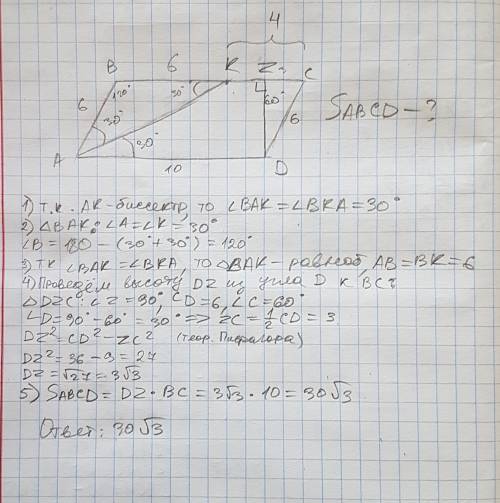 4
B 6 K Z 3 C
120° 30° 60°
6 30° 6
SABCD - ?
A 30° D
10
1) Т.К. АК-биссектр, то ∠BAK = ∠BKA = 30°
2) △BAK: ∠A = ∠K = 30°
∠B = 180 - (30° + 30°) = 120°
3) ТК ∠BAK = ∠BKA, ТО △BAK - равноб, AB = BK = 6
4) Проведём высоту DZ из угла D к BC:
△DZC: ∠Z = 90°, CD = 6, ∠C = 60°
∠D = 90° - 60° = 30° => ZC = 1/2 CD = 3
DZ² = CD² - ZC² (теор. Пифагора)
DZ² = 36 - 9 = 27
DZ = √27 = 3√3
5) SABCD = DZ · BC = 3√3 · 10 = 30√3
Ответ: 30√3